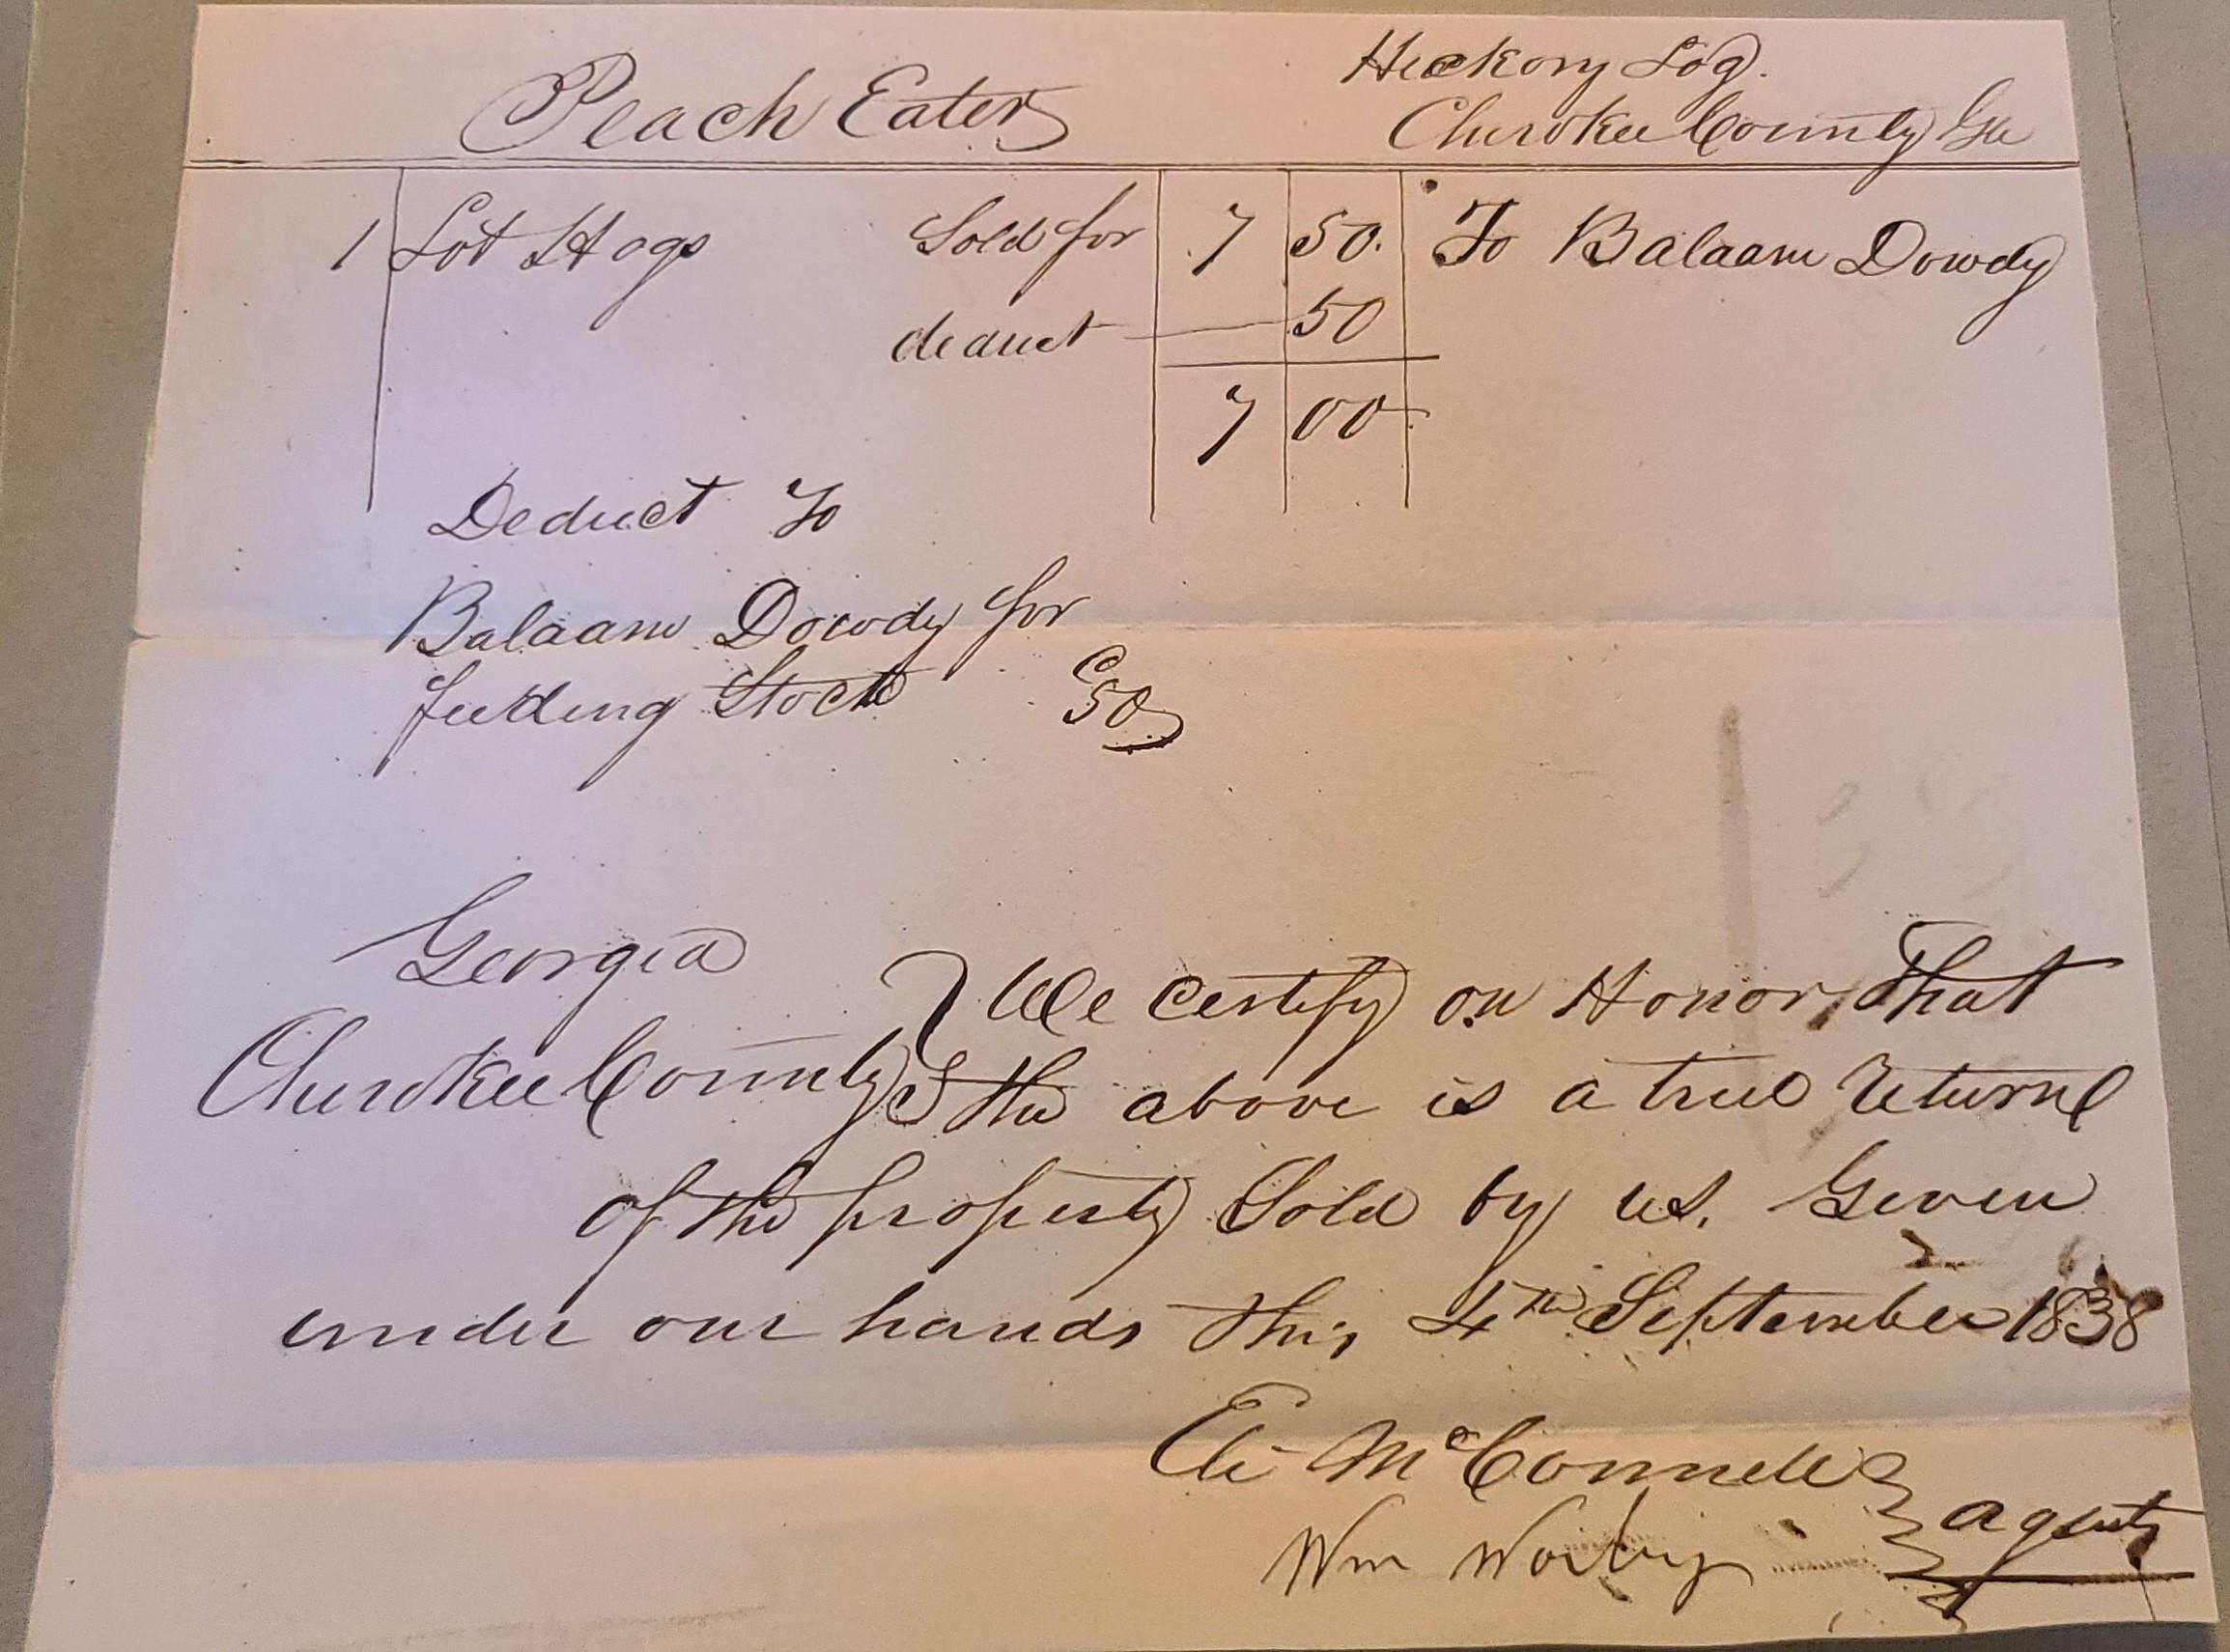 Peach Eater
Hickory Log.
Cherokee County Ga
1 Lot Hogs Sold for 7 50. To Balaam Dowdy
deduct 50
7 00
Deduct To
Balaam Dowdy for
feeding Stock 50
Georgia
Cherokee County } We certify on Honor, That
the above is a true return
of the property Sold by us. Given
under our hands this 4th September 1838
Eli McConnell
Wm Worley } agents